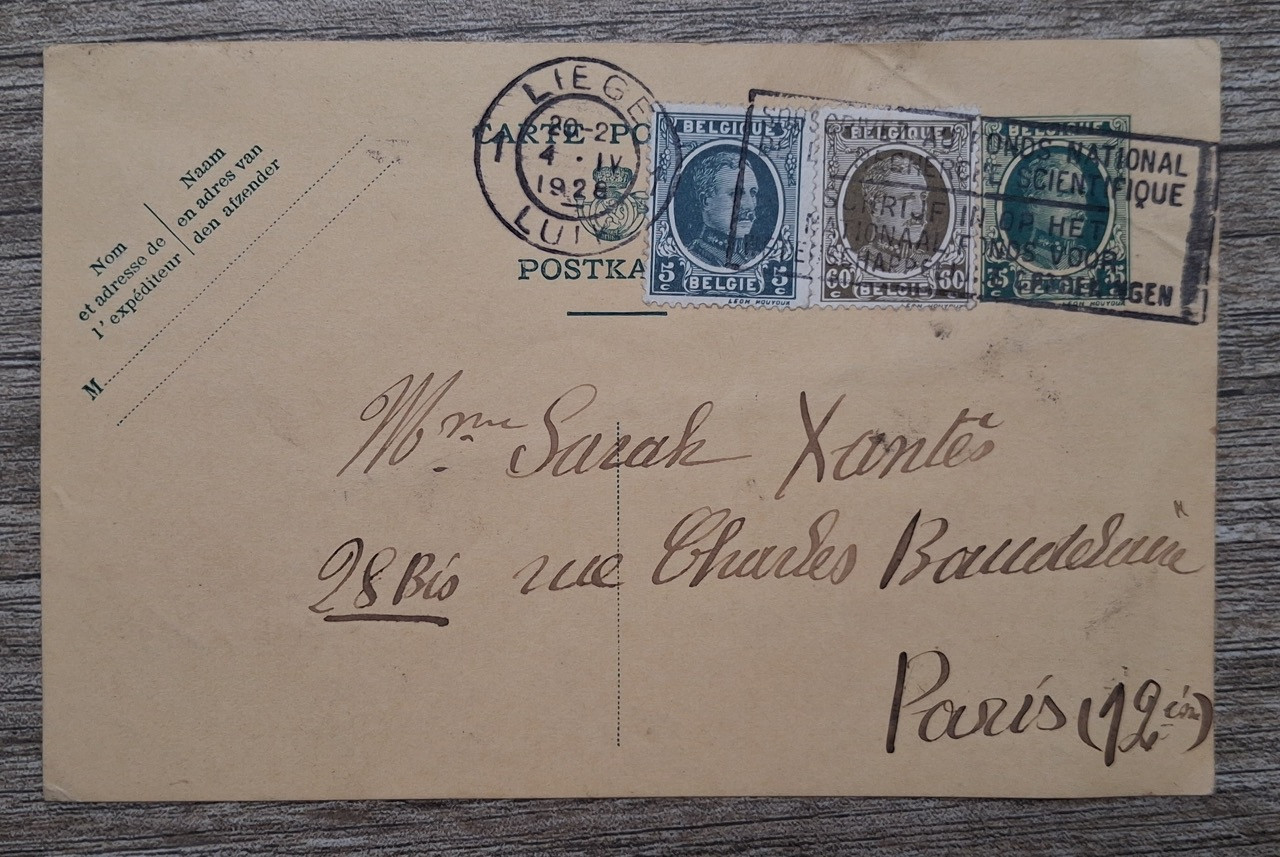 LIEGE
1
20-21
4 . IV
1928
LUI
CARTE PO
POSTKA
BELGIQUE
5c BELGIË 5c
LÉON HOUYOUX
BELGIQUE
60c BELGIË 60c
BELGIQUE
35c BELGIË 35c
AU FONDS NATIONAL
RECHERCHE SCIENTIFIQUE
IN OP HET
NATIONAAL FONDS VOOR
Nom
et adresse de
l'expéditeur
Naam
en adres van
den afzender
M
Mme Sarah Xantès
28 Bis rue Charles Baudelaire
Paris (12ième)